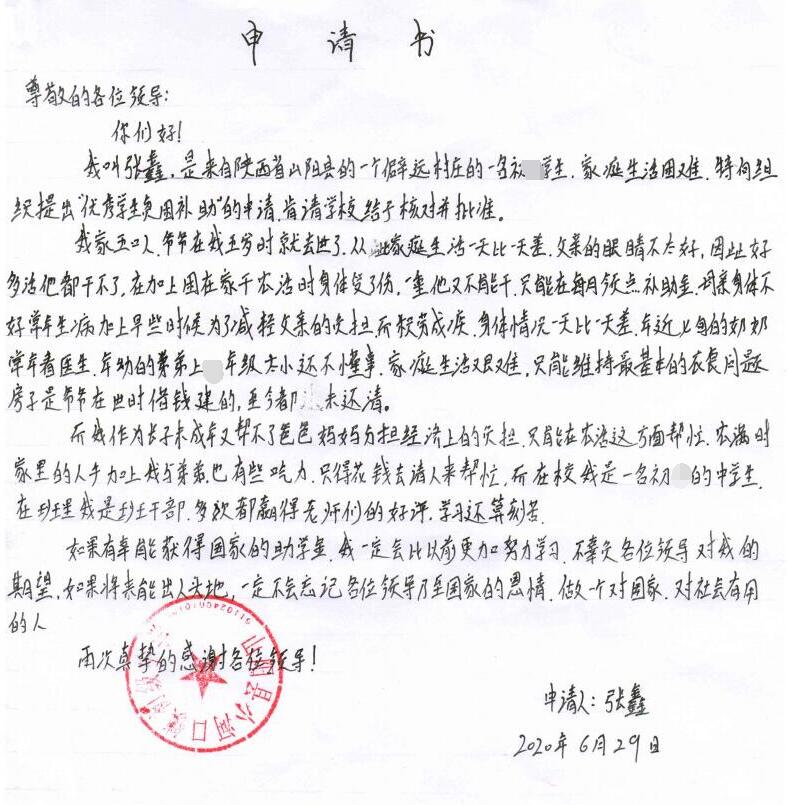 申请书
尊敬的各位领导:
你们好!
我叫张鑫,是来自陕西省山阳县的一个僻远村庄的一名初学生.家庭生活困难.特向组
织提出“优秀学生贫困补助”的申请.肯请学校给于核对并批准。
我家五口人.爷爷在我五岁时就去世了.从此家庭生活一天比一天差.父亲的眼睛不太好,因此好
多活他都干不了.在加上因在家干农活时身体受了伤,重他又不能干.只能在每月领点补助金.母亲身体不
好常年生病加上早些时候为了减轻父亲的负担而积劳成疾.身体情况一天比一天差.年近的奶奶
常年看医生.年幼的弟弟上年级太小还不懂事.家庭生活艰难,只能维持最基本的衣食问题
房子是爷爷在世时借钱建的,至今都未还清。
而我作为长子未成年又帮不了爸爸妈妈分担经济上的负担.只能在农活这方面帮忙.农满时
家里的人手加上我与弟弟也有些吃力.只得花钱去请人来帮忙.而在校我是一名初的中学生.
在班里我是班干部.多次都赢得老师们的好评.学习还算刻苦.
如果有幸能获得国家的助学金.我一定会比以前更加努力学习.不辜负各位领导对我的
期望.如果将来能出人头地,一定不会忘记各位领导乃至国家的恩情.做一个对国家.对社会有用
的人
再次真挚的感谢各位领导!
山阳县小河口镇
申请人:张鑫
2020年6月29日